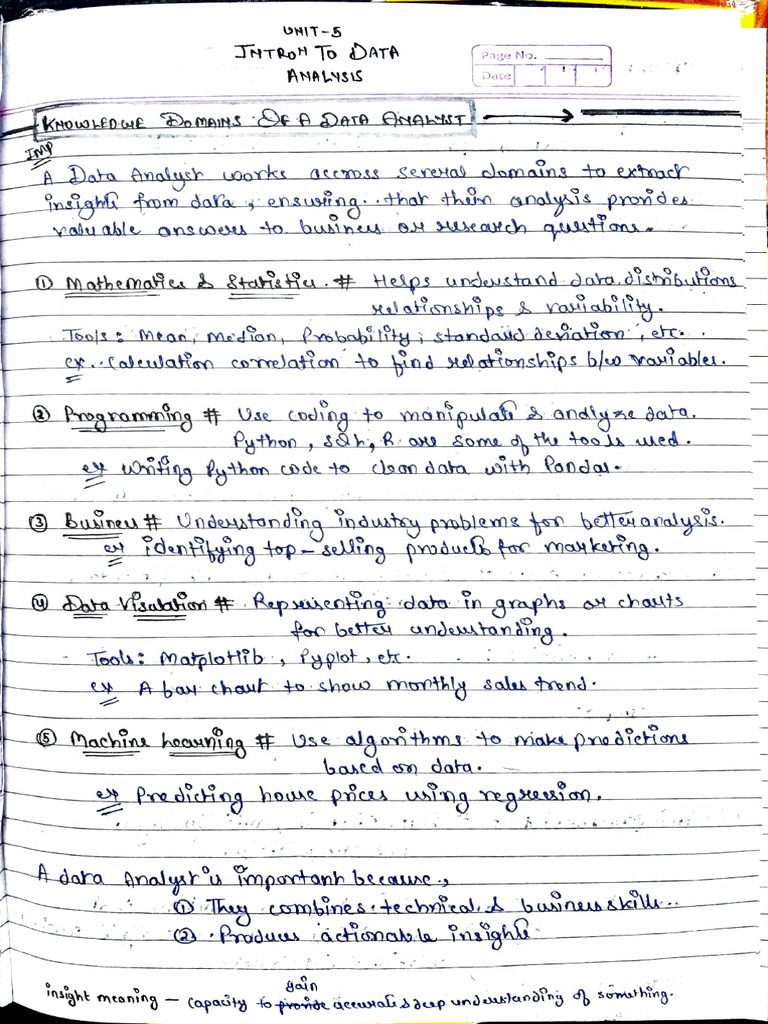 UNIT-5
INTRON TO DATA
ANALYSIS
Page No.
Date
KNOWLEDGE DOMAINS OF A DATA ANALYST
IMP
A Data Analyst works accross several domains to extract
insights from data, ensuring that their analysis provides
valuable answers to business or research questions.
① Mathematics & Statistics # Helps understand data distributions
relationships & variability.
Tools: Mean, Median, Probability, standard deviation, etc.
ex. Calculation correlation to find relationships b/w variables.
② Programming # Use coding to manipulate & analyze data.
Python, SQL, R are some of the tools used.
ex Writing Python code to clean data with Pandas.
③ Business # Understanding industry problems for better analysis.
ex identifying top-selling products for marketing.
④ Data Visulation # Representing data in graphs or charts
for better understanding.
Tools: Matplotlib, Pyplot, etc.
ex A bar chart to show monthly sales trend.
⑤ Machine Learning # Use algorithms to make predictions
based on data.
ex Predicting house prices using regression.
A data Analyst is important because,
① They combines technical & business skills.
② Produces actionable insights
gain
insight meaning – capacity to provide accurate & deep understanding of something.